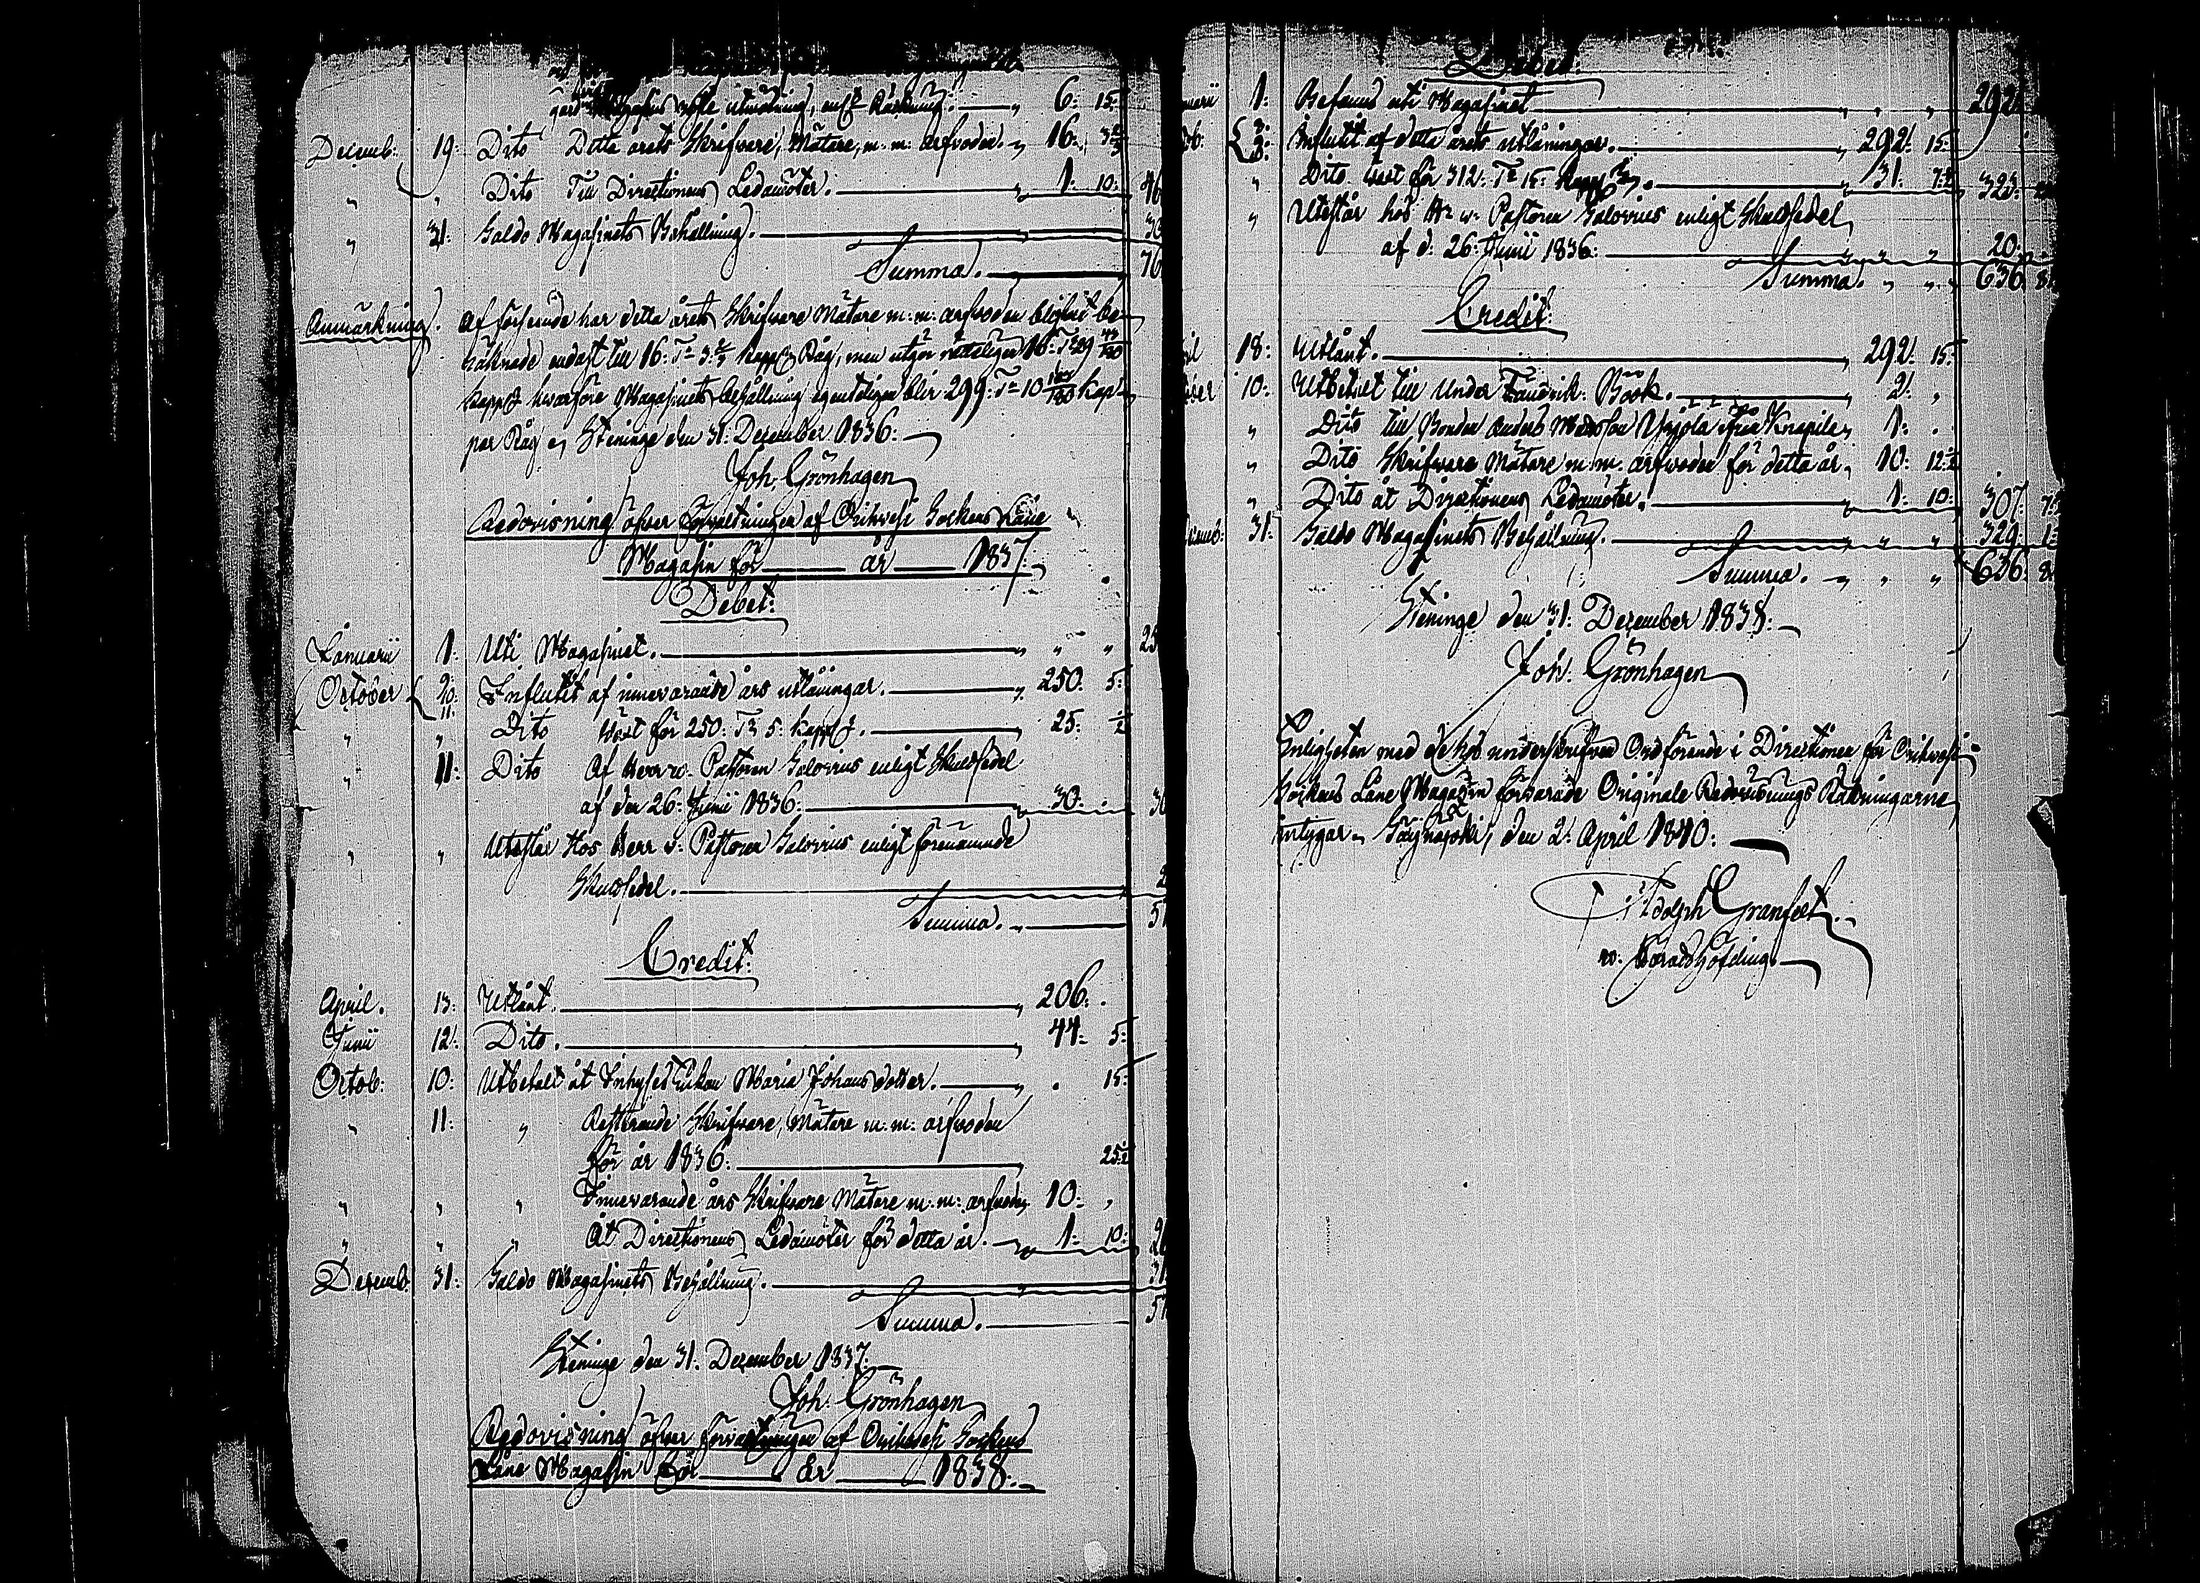 gård Magasins utmätning, enl. Räkning. 6: 15:
Decemb: 19: Dito Detta årets Skrifvare, Mätare, m: m: arfvoden. 16: 3 2/3
" " Dito Till Directionens Ledamöter. 1: 10: 46
" 31: Saldo Magasinets Behållning. 30
Summa. 76
Anmärkning. Af förseende har detta årets Skrifvare Mätare m: m: arfvoden blifvit be-
räknade endast till 16: Tr 3 2/3 kappar Råg, men utgör rätteligen 16: Tr 29
kappar hvarföre Magasinets behållning egenteligen blir 299: Tr 10 kap-
par Råg Steninge den 31: December 1836:
Joh: Grönhagen
Redovisning öfver förvaltningen af Orihvesi Sockens Låne
Magasin för år 1837:
Debet:
Januarii 1: Uti Magasinet. " " 25
October 2: 10: 11: Influtit af innevarande års utlåningar. 250: 5:
" " Dito Växt för 250: Tr 5: kappar. 25: 1/2
" 11: Dito Af Herr v: Pastoren Salovius enligt Skuldsedel
af den 26: Junii 1836: 30: 30
" " Utestår Hos Herr v: Pastoren Salovius enligt förenämnde
Skuldsedel. 2
Summa. 51
Credit:
April. 13: Utlånt. 206:
Junii 12: Dito. 44: 5:
Octob: 10: Utbetalt åt Inhyses Enkan Maria Johans dotter. 15:
" 11: " Resterande Skrifvare, Mätare m: m: arfvoden
för år 1836: 25 1/2
" " " Innevarande års Skrifvare Mätare m: m: arfvoden 10:
" " " Åt Directionens Ledamöter för detta år. 1: 10: 26
Decemb: 31: Saldo Magasinets Behållning. 31
Summa. 57
Steninge den 31. December 1837:
Joh: Grönhagen
Redovisning öfver förvaltningen af Orihvesi Sockens
Låne Magasin för År 1838:
Debet:
narii 1: Befanns uti Magasinet " " " 292
ob: Influtit af detta årets utlåningar. 292: 15:
" Dito växt för 312: Tr 15: kappar. 31: 7 1/2 323:
" Utestår hos Hr v: Pastoren Salovius enligt Skuldsedel
af d: 26: Junii 1836: 20:
Summa. " " " 636: 8
Credit:
il 18: Utlånt. 292: 15:
ober 10: Utbetalt till Under Fändrik Böök. 2: "
" Dito till Bonden Anders Mattsson Yrjölä ifrån 1: "
" Dito Skrifvare Mätare m: m: arfvoden för detta år 10: 12 1/2
" Dito åt Directionens Ledamöter. 1: 10: 307: 7
cemb: 31: Saldo Magasinets Behållning. " " " 329: 1
Summa. " " " 636: 8
Steninge den 31: December 1838:
Joh: Grönhagen
Enligheten med de hos underskrifven Ordförande i Directionen för Orihvesi
Sockens Låne Magazin förvarade Originale Redovisnings Räkningarne
intygar den 2: April 1840:
Adolph Granfelt
v: Häradshöfding